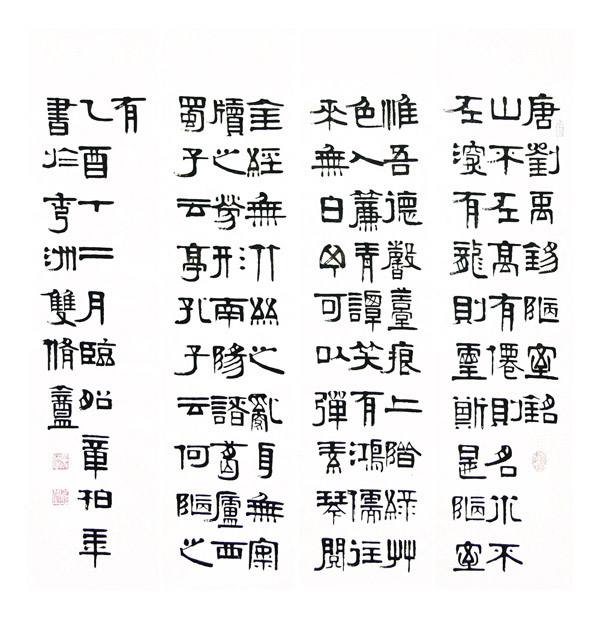 唐劉禹錫陋室銘
山不在高有僊則名水不
在深有龍則靈斯是陋室
惟吾德馨臺痕上階綠艸
色入簾青譚笑有鴻儒往
來無白丁可以彈素琴閱
金經無竹絲之亂耳無案
牘之勞形南陽諸葛廬西
蜀子云亭孔子云何陋之
有
乙酉十二月臨章柏年
書於洲雙脩盦